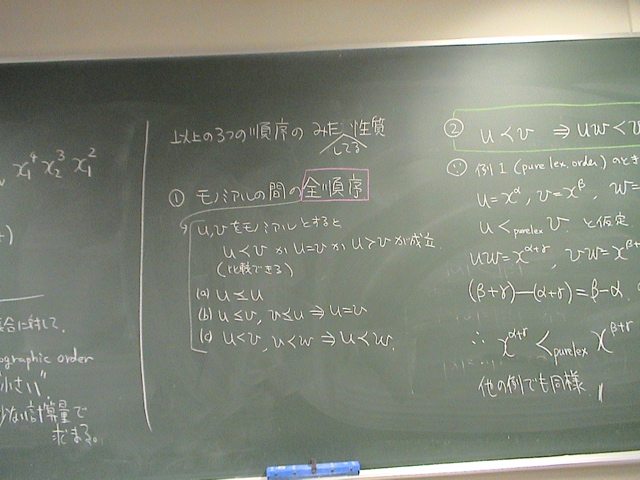 x₁⁴ x₂³ x₁²
合に対して,
ographic order
小さい"
ない計算量で
求まる。
以上の3つの順序の みたす性質
してる
① モノミアルの間の全順序
u,vをモノミアルとすると
u<v か u=v か u>v が成立.
(比較できる)
(a) u≤u
(b) u≤v, v≤u ⇒ u=v
(c) u<v, v<w ⇒ u<w.
② u<v ⇒ uw<v
例1 (pure lex. order) のとき
u=x^α, v=x^β, w=
u <purelex v と仮定
uw=x^{α+γ}, vw=x^{β+
(β+γ)-(α+γ)=β-α.
∴ x^{α+γ} <purelex x^{β+γ}
他の例でも同様